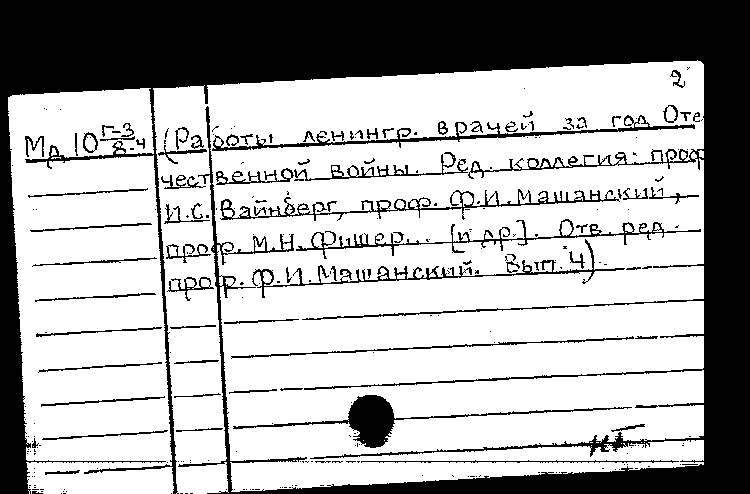 2
Мд 10 Г-3/8.ч (Работы ленингр. врачей за год Оте
чественной войны. Ред. коллегия: проф
И.С. Вайнберг, проф. Ф.И. Машанский,
проф. М.Н. Фишер... [и др.]. Отв. ред.
проф. Ф.И. Машанский. Вып. 4)